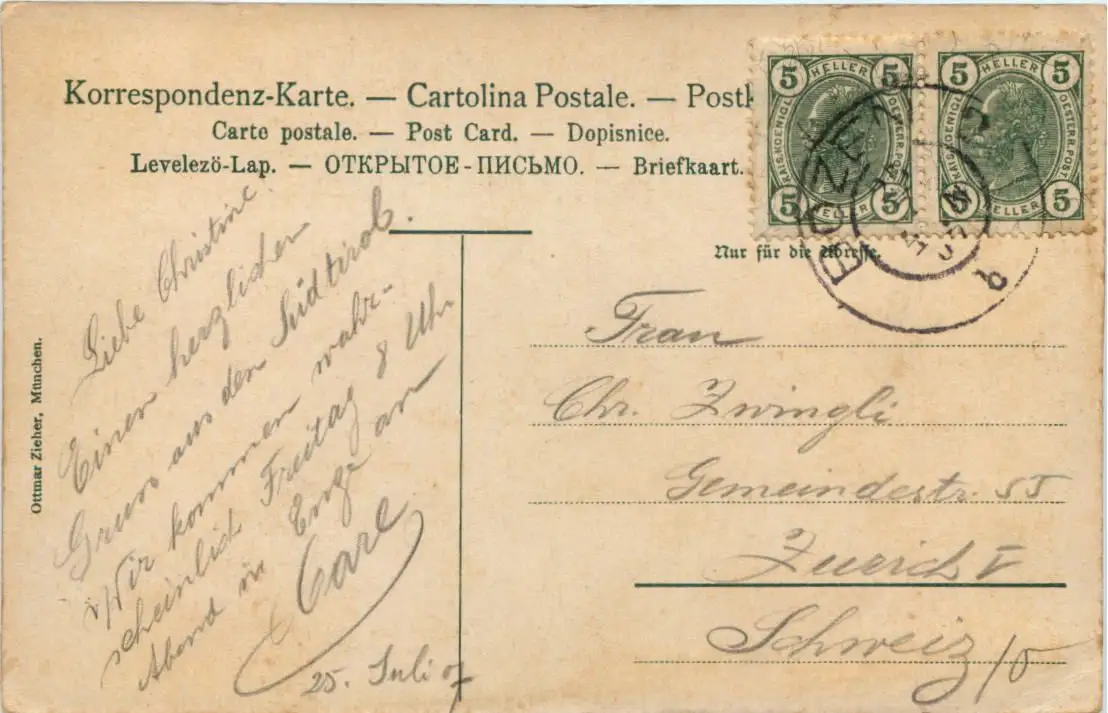 Korrespondenz-Karte. — Cartolina Postale. — Postk
Carte postale. — Post Card. — Dopisnice.
Levelező-Lap. — ОТКРЫТОЕ-ПИСЬМО. — Briefkaart.
5 HELLER 5
KAIS. KOENIGL. OESTERR. POST.
5 HELLER 5
5 HELLER 5
KAIS. KOENIGL. OESTERR. POST.
5 HELLER 5
BOZEN
b
Nur für die Adresse.
Liebe Christine
Einen herzlichen
Gruss aus dem Südtirol.
Wir kommen wahr-
scheinlich Freitag 8 Uhr
Abend in Enge an
Carl
25. Juli 07
Frau
Chr. Zwingli
Gemeindestr. 55
Zuerich V
Schweiz
Ottmar Zieher, München.